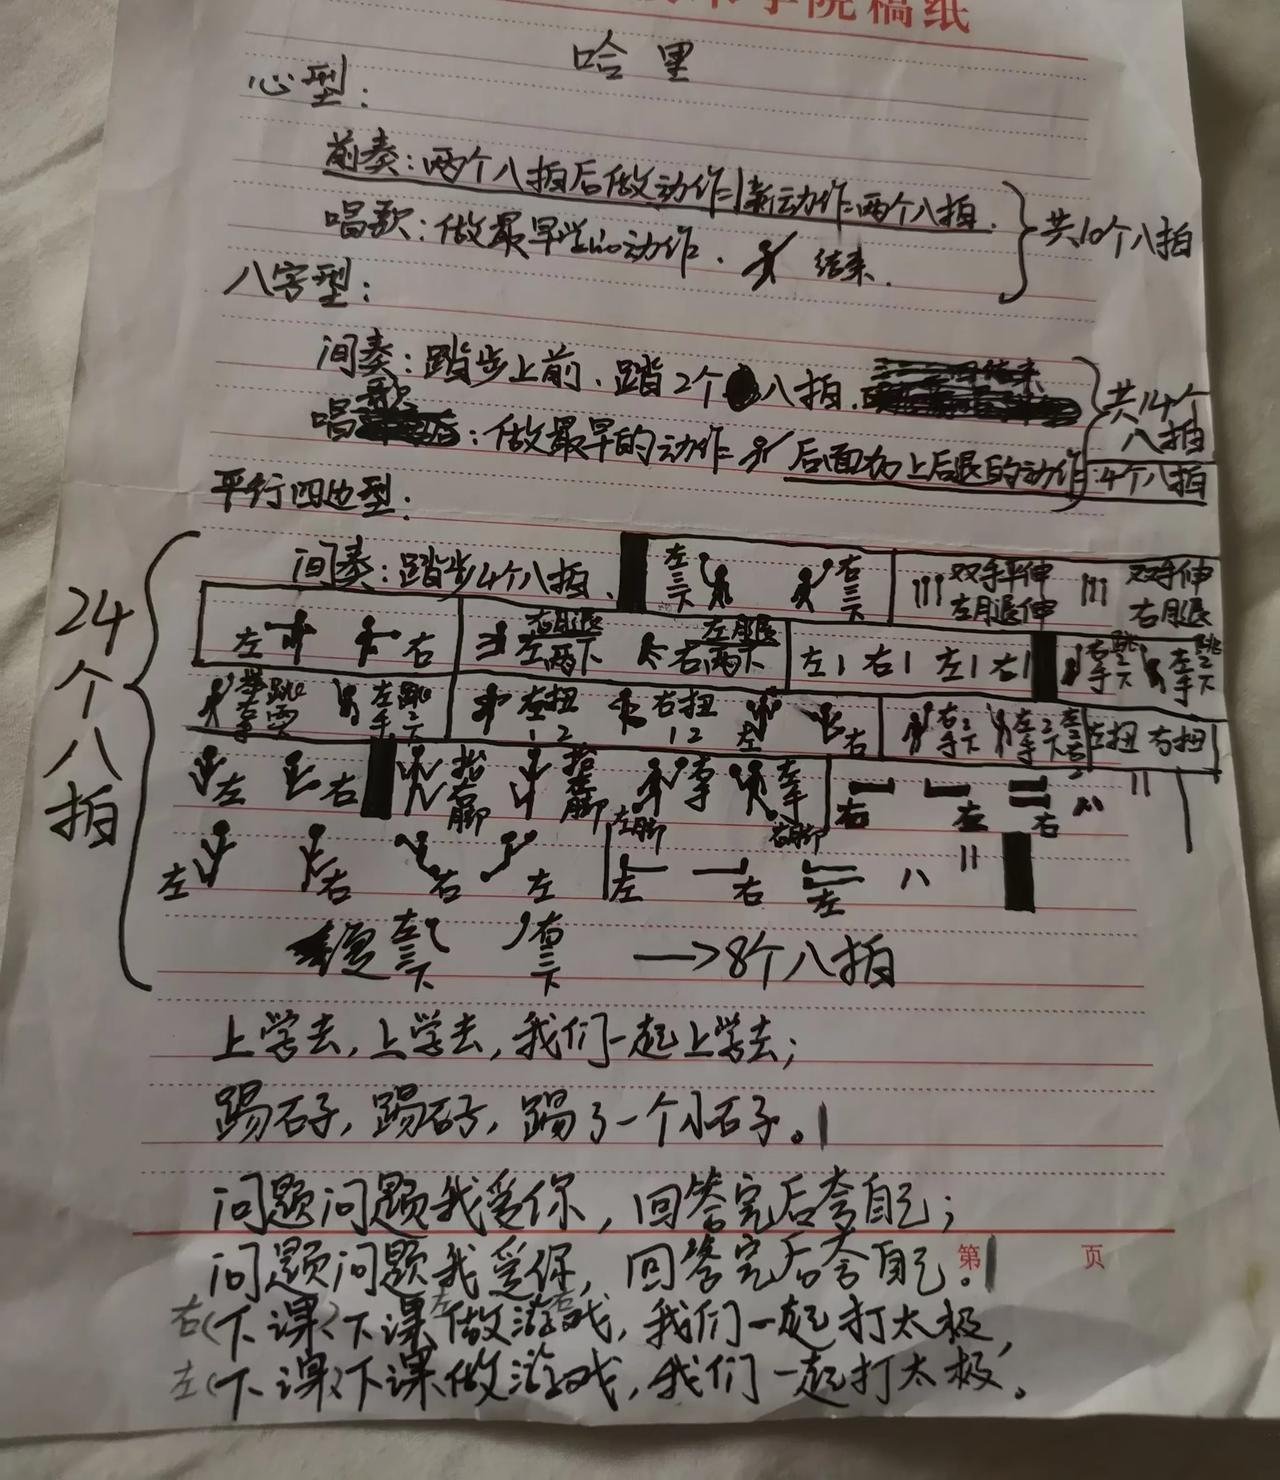 学院稿纸
哈里
心型：
前奏：两个八拍后做动作=1新动作=两个八拍.
唱歌：做最早的动作. 结束. 共10个八拍
八字型：
间奏：踏步上前、踏2个八拍.
唱歌：做最早的动作= 后面加上后退的动作:4个八拍
共14个八拍
平行四边型：
24个八拍
间奏：踏步4个八拍、 左三下 右三下 双手平伸左腿伸 双手伸右腿
左 右 右腿左两下 左腿右两下 左1 右1 左1 右1 右手跳2下 左手跳2下
左手跳2下 左扭12 右扭12 左 右 右手2下 左手2下 左扭 右扭
左 右 抬右脚 抬左脚 左脚 右手 左手 右脚 右 左 右 八 11
左 右 右 左 左 右 左 八 11
左三下 右三下 →8个八拍
上学去，上学去，我们一起上学去；
踢石子，踢石子，踢了一个小石子。
问题问题我爱你，回答完后夸自己；
问题问题我爱你，回答完后夸自己。
第 页
右(下课)下课做游戏，我们一起打太极，
左(下课)下课做游戏，我们一起打太极。